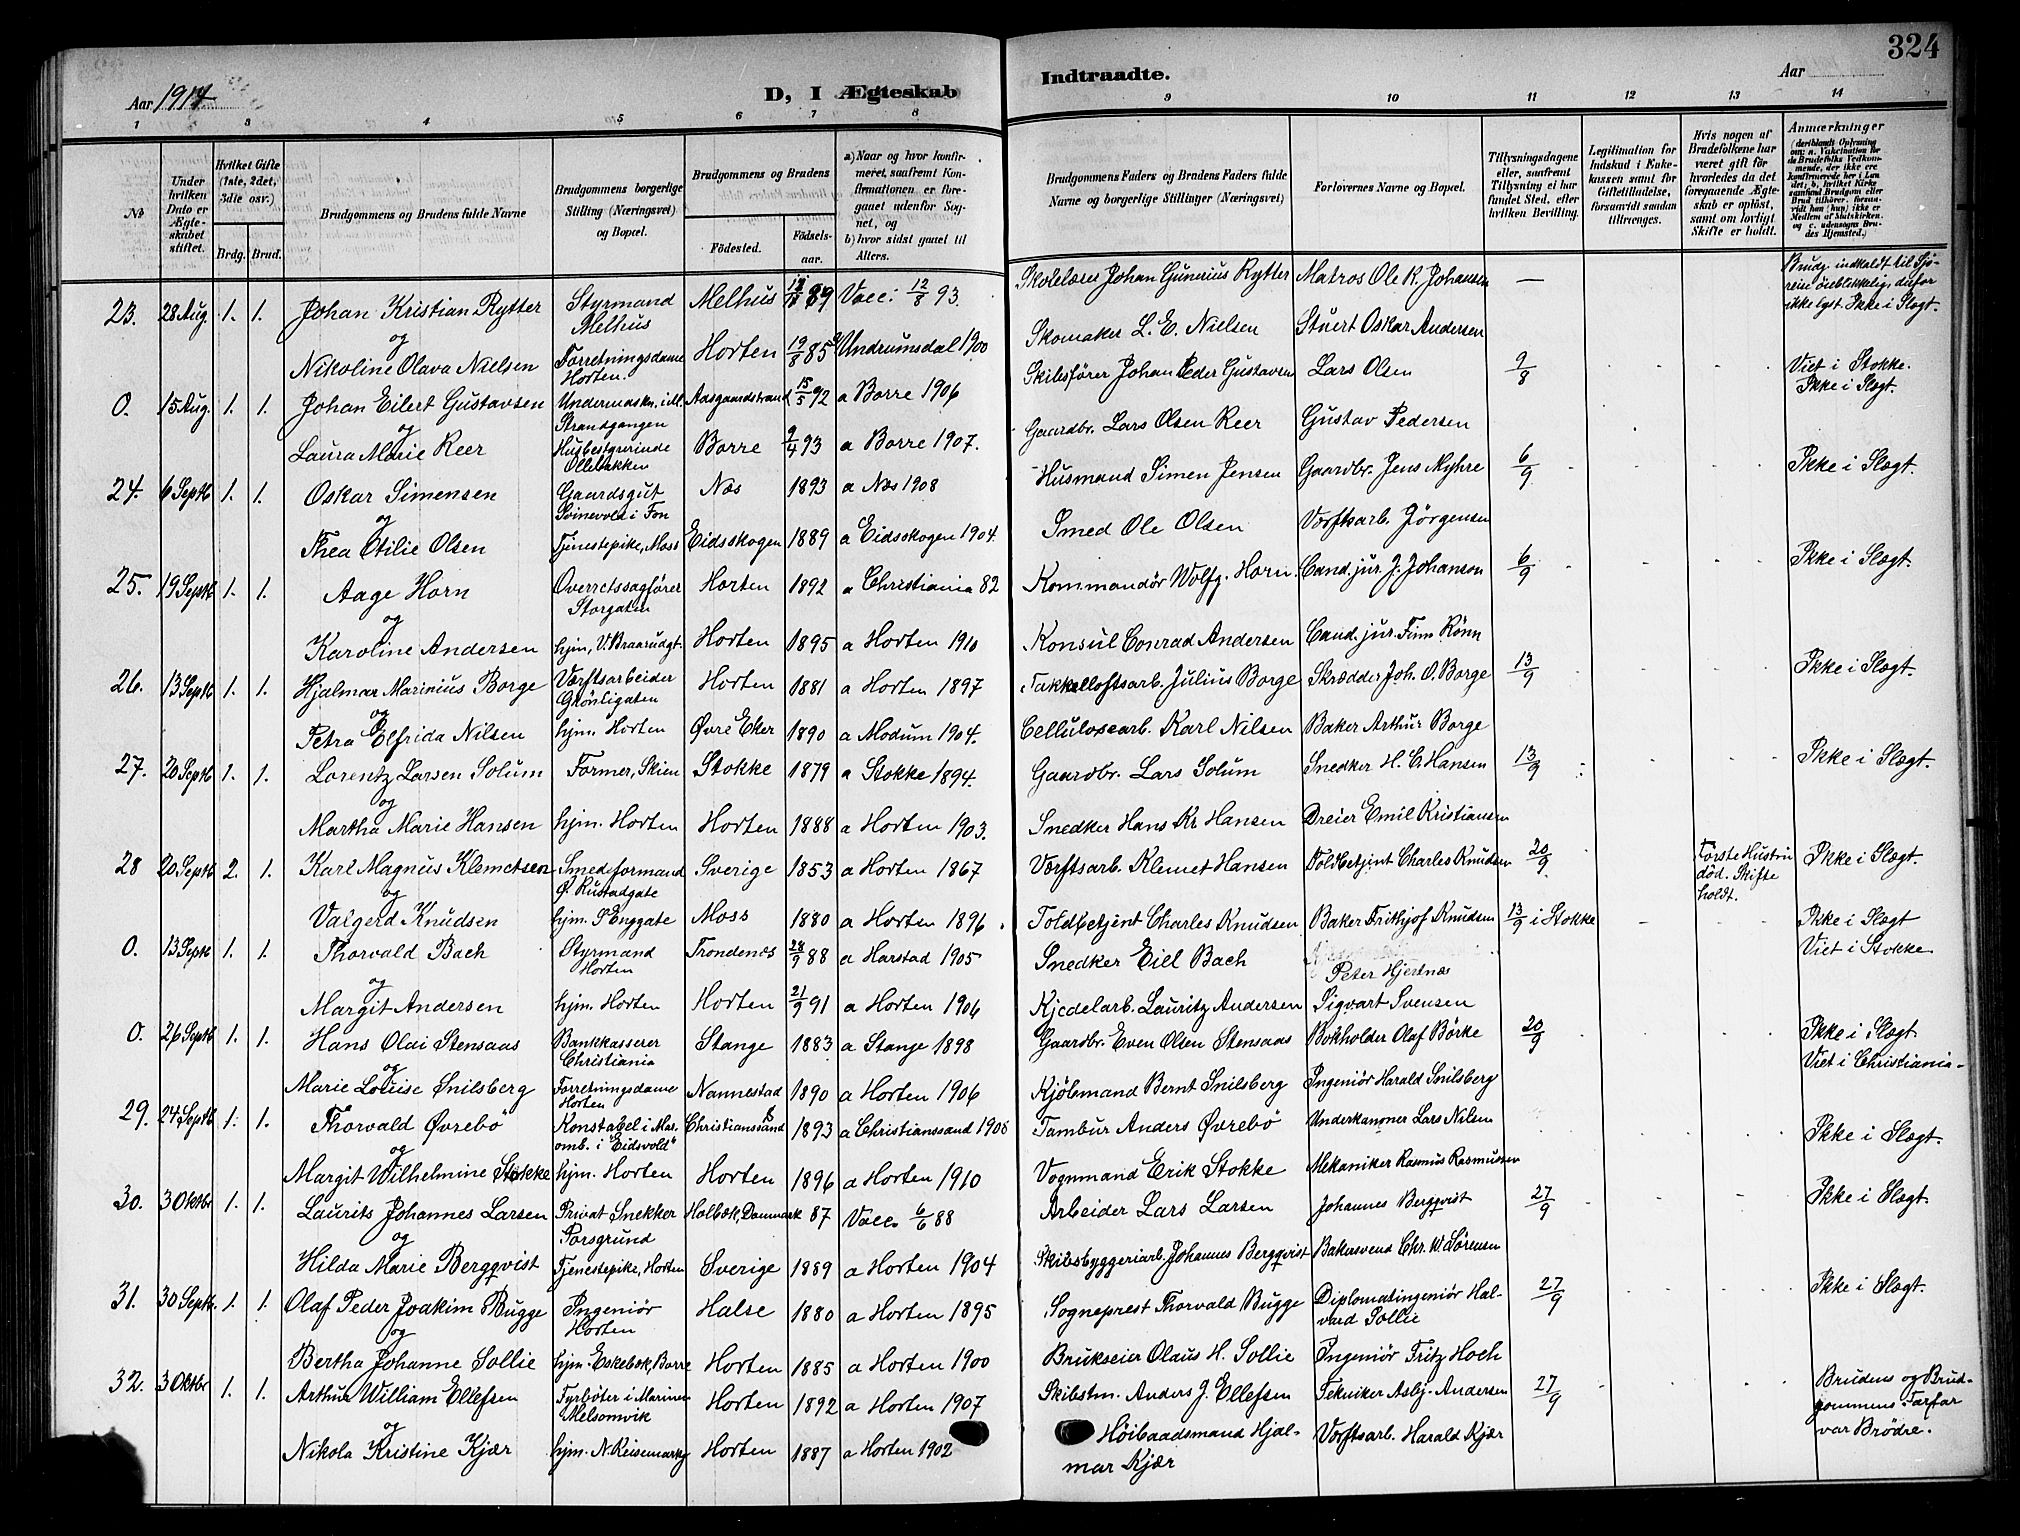 324
Aar 1914
D, I Ægteskab
Indtraadte.
Aar
1 3 4 5 6 7 8 9 10 11 12 13 14
No
Under hvilken Dato er Ægteskabet stiftet.
Hvilket Gifte (1ste, 2det, 3die osv.)
Brdg. Brud.
Brudgommens og Brudens fulde Navne
Brudgommens borgerlige Stilling (Næringsvei) og Bopæl.
Brudgommens og Brudens
Födested.
Födselsaar.
a) Naar og hvor konfirmeret, saafremt Konfirmationen er foregaaet udenfor Sognet, og
b) hvor sidst gaaet til Alters.
Brudgommens Faders og Brudens Faders fulde Navne og borgerlige Stillinger (Næringsvei)
Forlovernes Navne og Bopæl.
Tillysningsdagene eller, saafremt Tillysning ei har fundet Sted, efter hvilken Bevilling.
Legitimation for Indskud i Enkekassen samt for Giftetilladelse, forsaavidt saadan tiltrænges.
Hvis nogen af Brudefolkene har været gift för hvorledes da det foregaaende Ægteskab er oplöst, samt om lovligt Skifte er holdt.
Anmærkninger
23. 28 Aug. 1. 1. Johan Kristian Rytter Styrmand Melhus Melhus 89 Vacc. 12/8 93. Skolelærer Johan Gunerius Rytter Matros Ole R. Johansen — Brudg. indkaldt til Sjöreise öieblikkelig, derfor ikke lyst. Ikke i Slægt.
og
Nikoline Olava Nielsen Forretningsdame Horten. Horten 19/8 85 a Undrumsdal 1900 Skomaker L. E. Nielsen Stuert Oskar Andersen
0. 15 Aug. 1. 1. Johan Eilert Gustavsen Undermaskn. i M. Strandgangen Aasgaardstrand 15/5 92 a Borre 1906 Skibsförer Johan Peder Gustavsen Lars Olsen 9/8 Viet i Stokke. Ikke i Slægt.
og
Laura Marie Reer Husbestyrerinde Ollebakken Borre 9/4 93 a Borre 1907. Gaardbr. Lars Olsen Reer Gustav Pedersen
24. 6 Septb 1. 1. Oskar Simensen Gaardsgut Svinevold i Fon Næs 1893 a Næs 1908 Husmand Simen Jensen Gaardbr. Jens Myhre 6/9 Ikke i Slægt.
og
Thea Otilie Olsen Tjenestepike, Moss Eidsskogen 1889 a Eidsskogen 1904. Smed Ole Olsen Værftsarb. Jörgensen
25. 19 Septb 1. 1. Aage Horn Overretssagförer Storgaten Horten 1892 a Christiania 82 Kommandör Wolfg. Horn. Cand. jur. J. Johanson 6/9 Ikke i Slægt.
og
Karoline Andersen hjm, V. Braarudgt. Horten 1895 a Horten 1910 Konsul Conrad Andersen Cand. jur. Finn Rönn
26. 13 Septb 1. 1. Hjalmar Marinius Borge Værftsarbeider Grönligaten Horten 1881 a Horten 1897 Takkelloftsarb. Julius Borge Skrædder Joh. O. Borge 13/9 Ikke i Slægt.
og
Petra Elfrida Nilsen hjm. Horten Øvre Eker 1890 a Modum 1904. Cellulosearb. Karl Nilsen Baker Arthur Borge
27. 20 Septb 1. 1. Lorentz Larsen Solum Former, Skien Stokke 1879 a Stokke 1894. Gaardbr. Lars Solum Snedker H. C. Hansen 13/9 Ikke i Slægt.
og
Martha Marie Hansen hjm. Horten Horten 1888 a Horten 1903. Snedker Hans Kr Hansen Dreier Emil Kristiansen
28 20 Septb 2. 1. Karl Magnus Klemetsen Smedeformand Ø. Rustadgate Sverige 1853 a Horten 1867 Værftsarb. Klemet Hansen Toldbetjent Charles Knudsen 20/9 Förste Hustru död. Skifte holdt. Ikke i Slægt.
og
Valgerd Knudsen hjm. S Enggate Moss 1880 a Horten 1896. Toldbetjent Charles Knudsen Baker Frithjof Knudsen
0. 13 Septb 1. 1. Thorvald Bach Styrmand Horten Trondenæs 28/9 88 a Harstad 1905 Snedker Eiel Bach Peter Hjertnæs 13/9 i Stokke Ikke i Slægt Viet i Stokke
og
Margit Andersen hjm. Horten Horten 21/9 91 a Horten 1906 Kjedelarb. Lauritz Andersen Sigvart Svensen
0. 26 Septb 1. 1. Hans Olai Stensaas Bankkasserer Christiania Stange 1883 a Stange 1898 Gaardbr. Even Olsen Stensaas Bokholder Olaf Börke 20/9 Ikke i Slægt. Viet i Christiania
og
Marie Louise Snilsberg Forretningsdame Horten Nannestad 1890 a Horten 1906 Kjöbmand Bernt Snilsberg Ingeniör Harald Snilsberg
29. 24 Septb 1. 1. Thorvald Øvrebö Konstabel i Mar. omb. i "Eidsvold" Christianssand 1893 a Christianssand 1908 Tambur Anders Øvrebö Underkanoner Lars Nilsen Ikke i Slægt.
og
Margit Wilhelmine Stokke hjm. Horten Horten 1896 a Horten 1910 Vognmand Erik Stokke Mekaniker Rasmus Rasmussen
30. 3 Oktbr 1. 1. Laurits Johannes Larsen Privat Snekker Porsgrund Holbæk, Danmark 87 Vacc. 6/6 88 Arbeider Lars Larsen Johannes Bergqvist 27/9 Ikke i Slægt.
og
Hilda Marie Bergqvist Tjenestepike, Horten Sverige 1889 a Horten 1904 Skibsbyggeriarb. Johannes Bergqvist Bakersvend Chr. W. Sörensen
31. 30 Septb. 1. 1. Olaf Peder Joakim Bugge Ingeniör Horten Halse 1880 a Horten 1895 Sogneprest Thorvald Bugge Diplomatingeniör Halvard Sollie 27/9 Ikke i Slægt.
og
Bertha Johanne Sollie hjm. Eskebæk, Borre Horten 1885 a Horten 1900 Brukseier Olaus H. Sollie Ingeniör Fritz Hoch
32. 3 Oktbr 1. 1. Arthur William Ellefsen Fyrböter i Marinen Melsomvik Horten 1892 a Horten 1907 Skibstm. Anders J. Ellefsen Tekniker Asbj. Andersen 27/9 Brudens og Brudgommens Farfar var Brödre.
og
Nikola Kristine Kjær hjm. N. Keisemark Horten 1887 a Horten 1902 Höibaadsmand Hjalmar Kjær Værftsarb. Harald Kjær